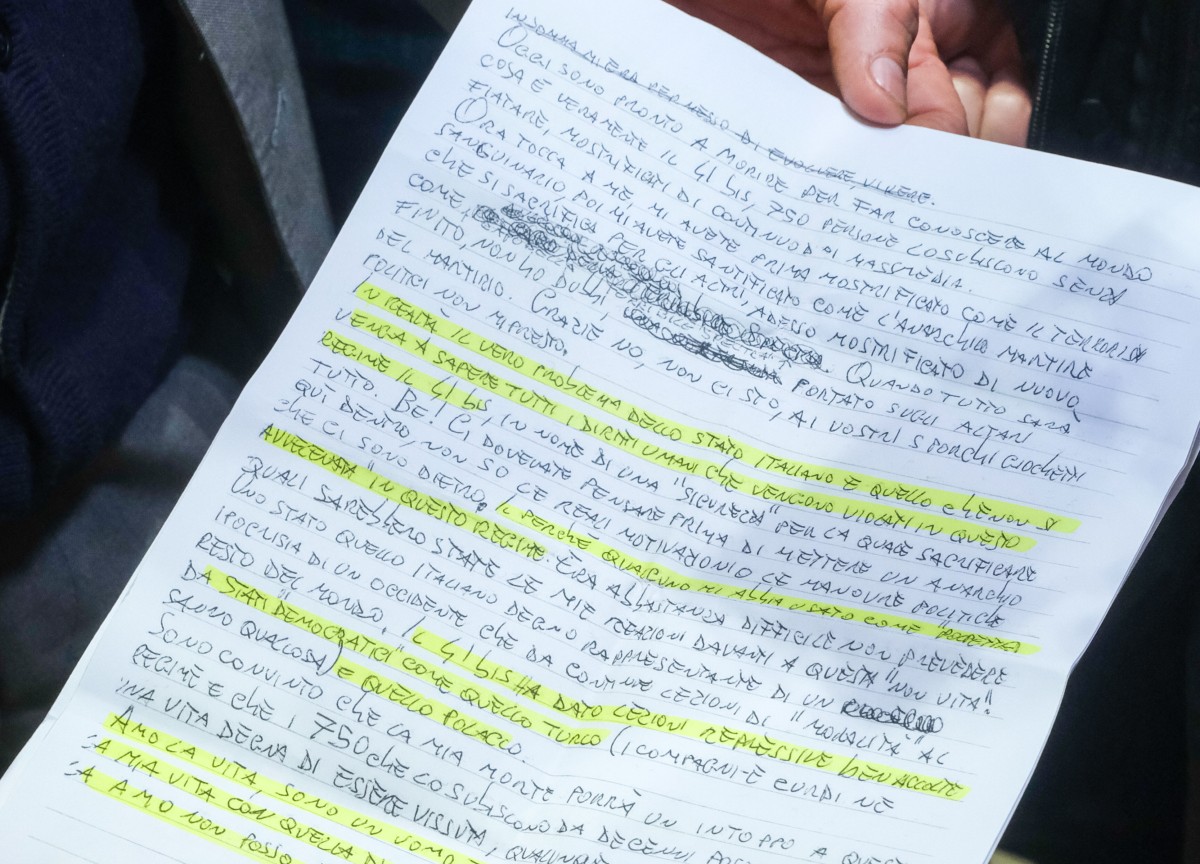 INSOMMA M'ERA PERMESSO DI EVOLVERE, VIVERE.
OGGI SONO PRONTO A MORIRE PER FAR CONOSCERE AL MONDO
COSA È VERAMENTE IL 41 BIS, 750 PERSONE LO SUBISCONO SENZA
FIATARE, MOSTRIFICATI DI CONTINUO DAI MASSMEDIA.
ORA TOCCA A ME, MI AVETE PRIMA MOSTRIFICATO COME IL TERRORISTA
SANGUINARIO POI MI AVETE SANTIFICATO COME L'ANARCHICO MARTIRE
CHE SI SACRIFICA PER GLI ALTRI, ADESSO MOSTRIFICATO DI NUOVO
COME . QUANDO TUTTO SARÀ
FINITO, NON HO DUBBI, PORTATO SUGLI ALTARI
DEL MARTIRIO. GRAZIE NO, NON CI STO, AI VOSTRI SPORCHI GIOCHETTI
POLITICI NON MI PRESTO.
IN REALTÀ IL VERO PROBLEMA DELLO STATO ITALIANO È QUELLO CHE NON SI
VENGA A SAPERE TUTTI I DIRITTI UMANI CHE VENGONO VIOLATI IN QUESTO
REGIME IL 41 BIS IN NOME DI UNA "SICUREZZA" PER LA QUALE SACRIFICARE
TUTTO. BE! CI DOVEVATE PENSARE PRIMA DI METTERE UN ANARCHICO
QUÌ DENTRO, NON SO LE REALI MOTIVAZIONI O LE MANOVRE POLITICHE
CHE CI SONO DIETRO. IL PERCHÉ QUALCUNO MI ABBIA USATO COME "POLPETTA
AVVELENATA" IN QUESTO REGIME. ERA ABBASTANZA DIFFICILE NON PREVEDERE
QUALI SAREBBERO STATE LE MIE REAZIONI DAVANTI A QUESTA "NON VITA".
UNO STATO QUELLO ITALIANO DEGNO RAPPRESENTANTE DI UN
IPOCRISIA DI UN OCCIDENTE CHE DA CONTINUE LEZIONI DI "MORALITÀ" AL
RESTO DEL MONDO. IL 41 BIS HA DATO LEZIONI REPRESSIVE BEN ACCOLTE
DA STATI "DEMOCRATICI" COME QUELLO TURCO (I COMPAGNI/E CURDI NE
SANNO QUALCOSA) E QUELLO POLACCO.
SONO CONVINTO CHE LA MIA MORTE PORRÀ UN INTOPPO A QUESTO
REGIME E CHE I 750 CHE LO SUBISCONO DA DECENNI
VITA DEGNA DI ESSERE VISSUTA,
AMO LA VITA, SONO UN UOMO
MIA VITA CON QUELLA DI
AMO NON POSSO